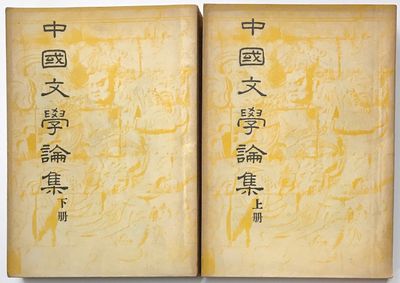 中國文學論集
下册
中國文學論集
上册